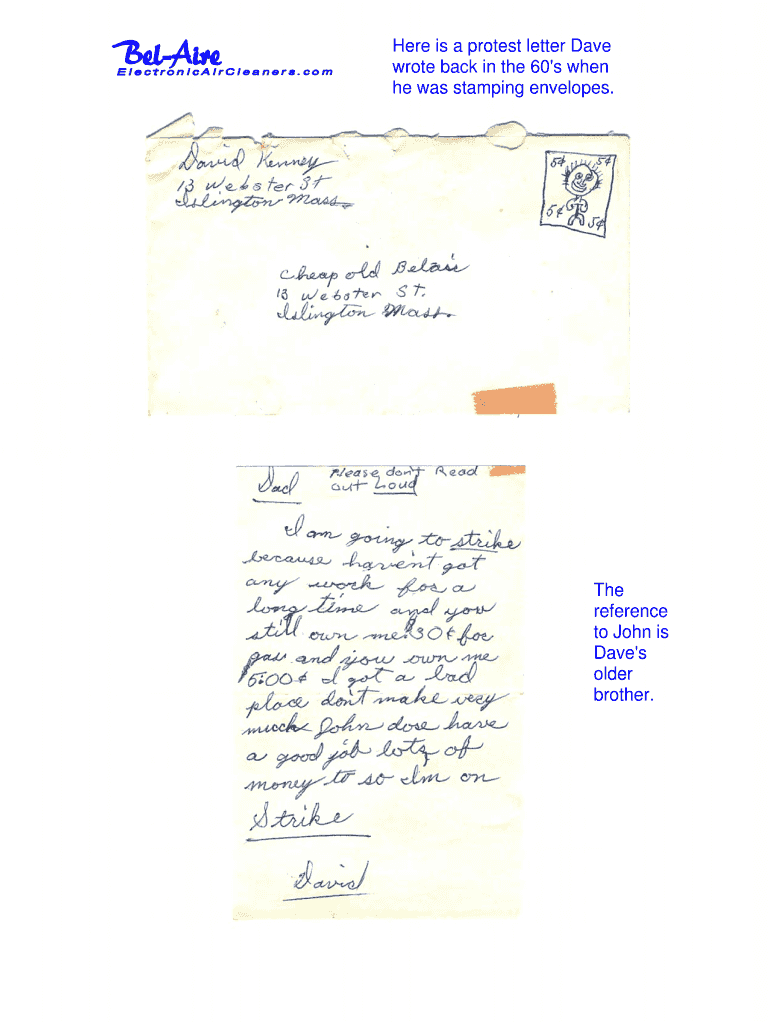 Bel-Aire
ElectronicAirCleaners.com
Here is a protest letter Dave
wrote back in the 60's when
he was stamping envelopes.
David Kenney
13 Webster St
Islington Mass.
5¢ 5¢
5¢ 5¢
Cheap old Belair
13 Webster St.
Islington Mass.
Dad
Please don't Read
out Loud
I am going to strike
because haven't got
any work for a
long time and you
still own me 30¢ for
gas and you own me
5:00¢ I got a bad
place don't make very
much John dose have
a good job lots of
money to so I'm on
Strike
David
The
reference
to John is
Dave's
older
brother.